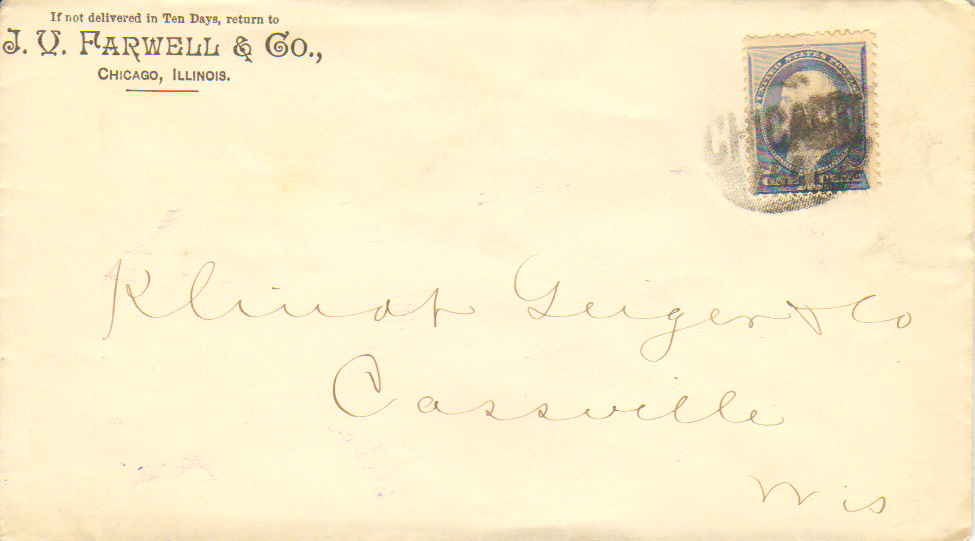 If not delivered in Ten Days, return to
J. V. FARWELL & CO.,
CHICAGO, ILLINOIS.
UNITED STATES POSTAGE
CHICAGO
Klindt Geiger & Co
Cassville
Wis